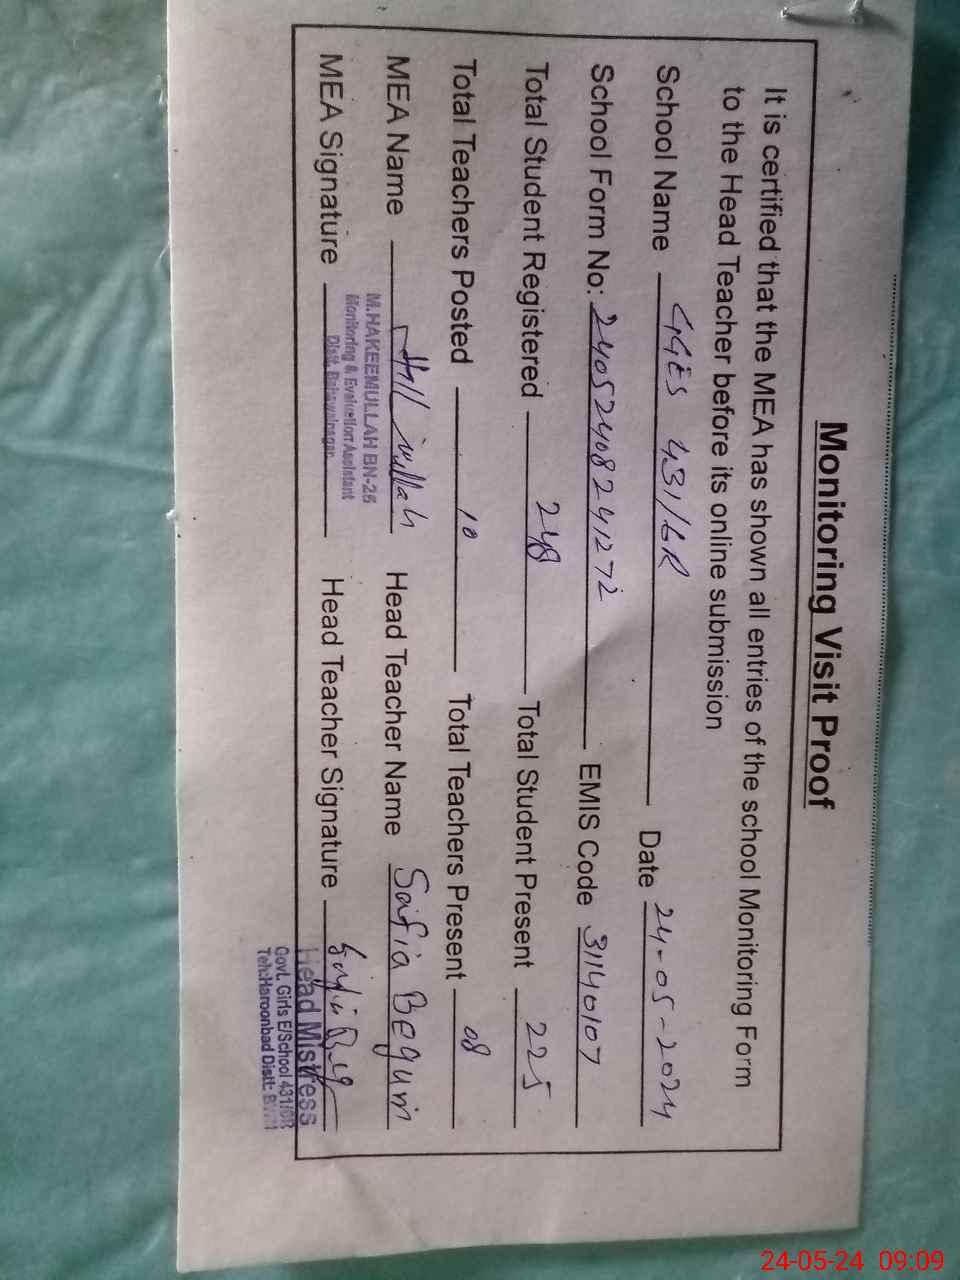 Monitoring Visit Proof
It is certified that the MEA has shown all entries of the school Monitoring Form
to the Head Teacher before its online submission
School Name GGES 431/6R Date 24-05-2024
School Form No: 24052408241272 EMIS Code 31140107
Total Student Registered 248 Total Student Present 225
Total Teachers Posted 10 Total Teachers Present 08
MEA Name Head Teacher Name Safia Begum
M.HAKEEMULLAH BN-26
Monitoring & Evaluation Assistant
Distt. Bahawalnagar
MEA Signature Head Teacher Signature
Head Mistress
Govt. Girls E/School 431/6R
Teh:Haroonbad Distt:
24-05-24 09:09